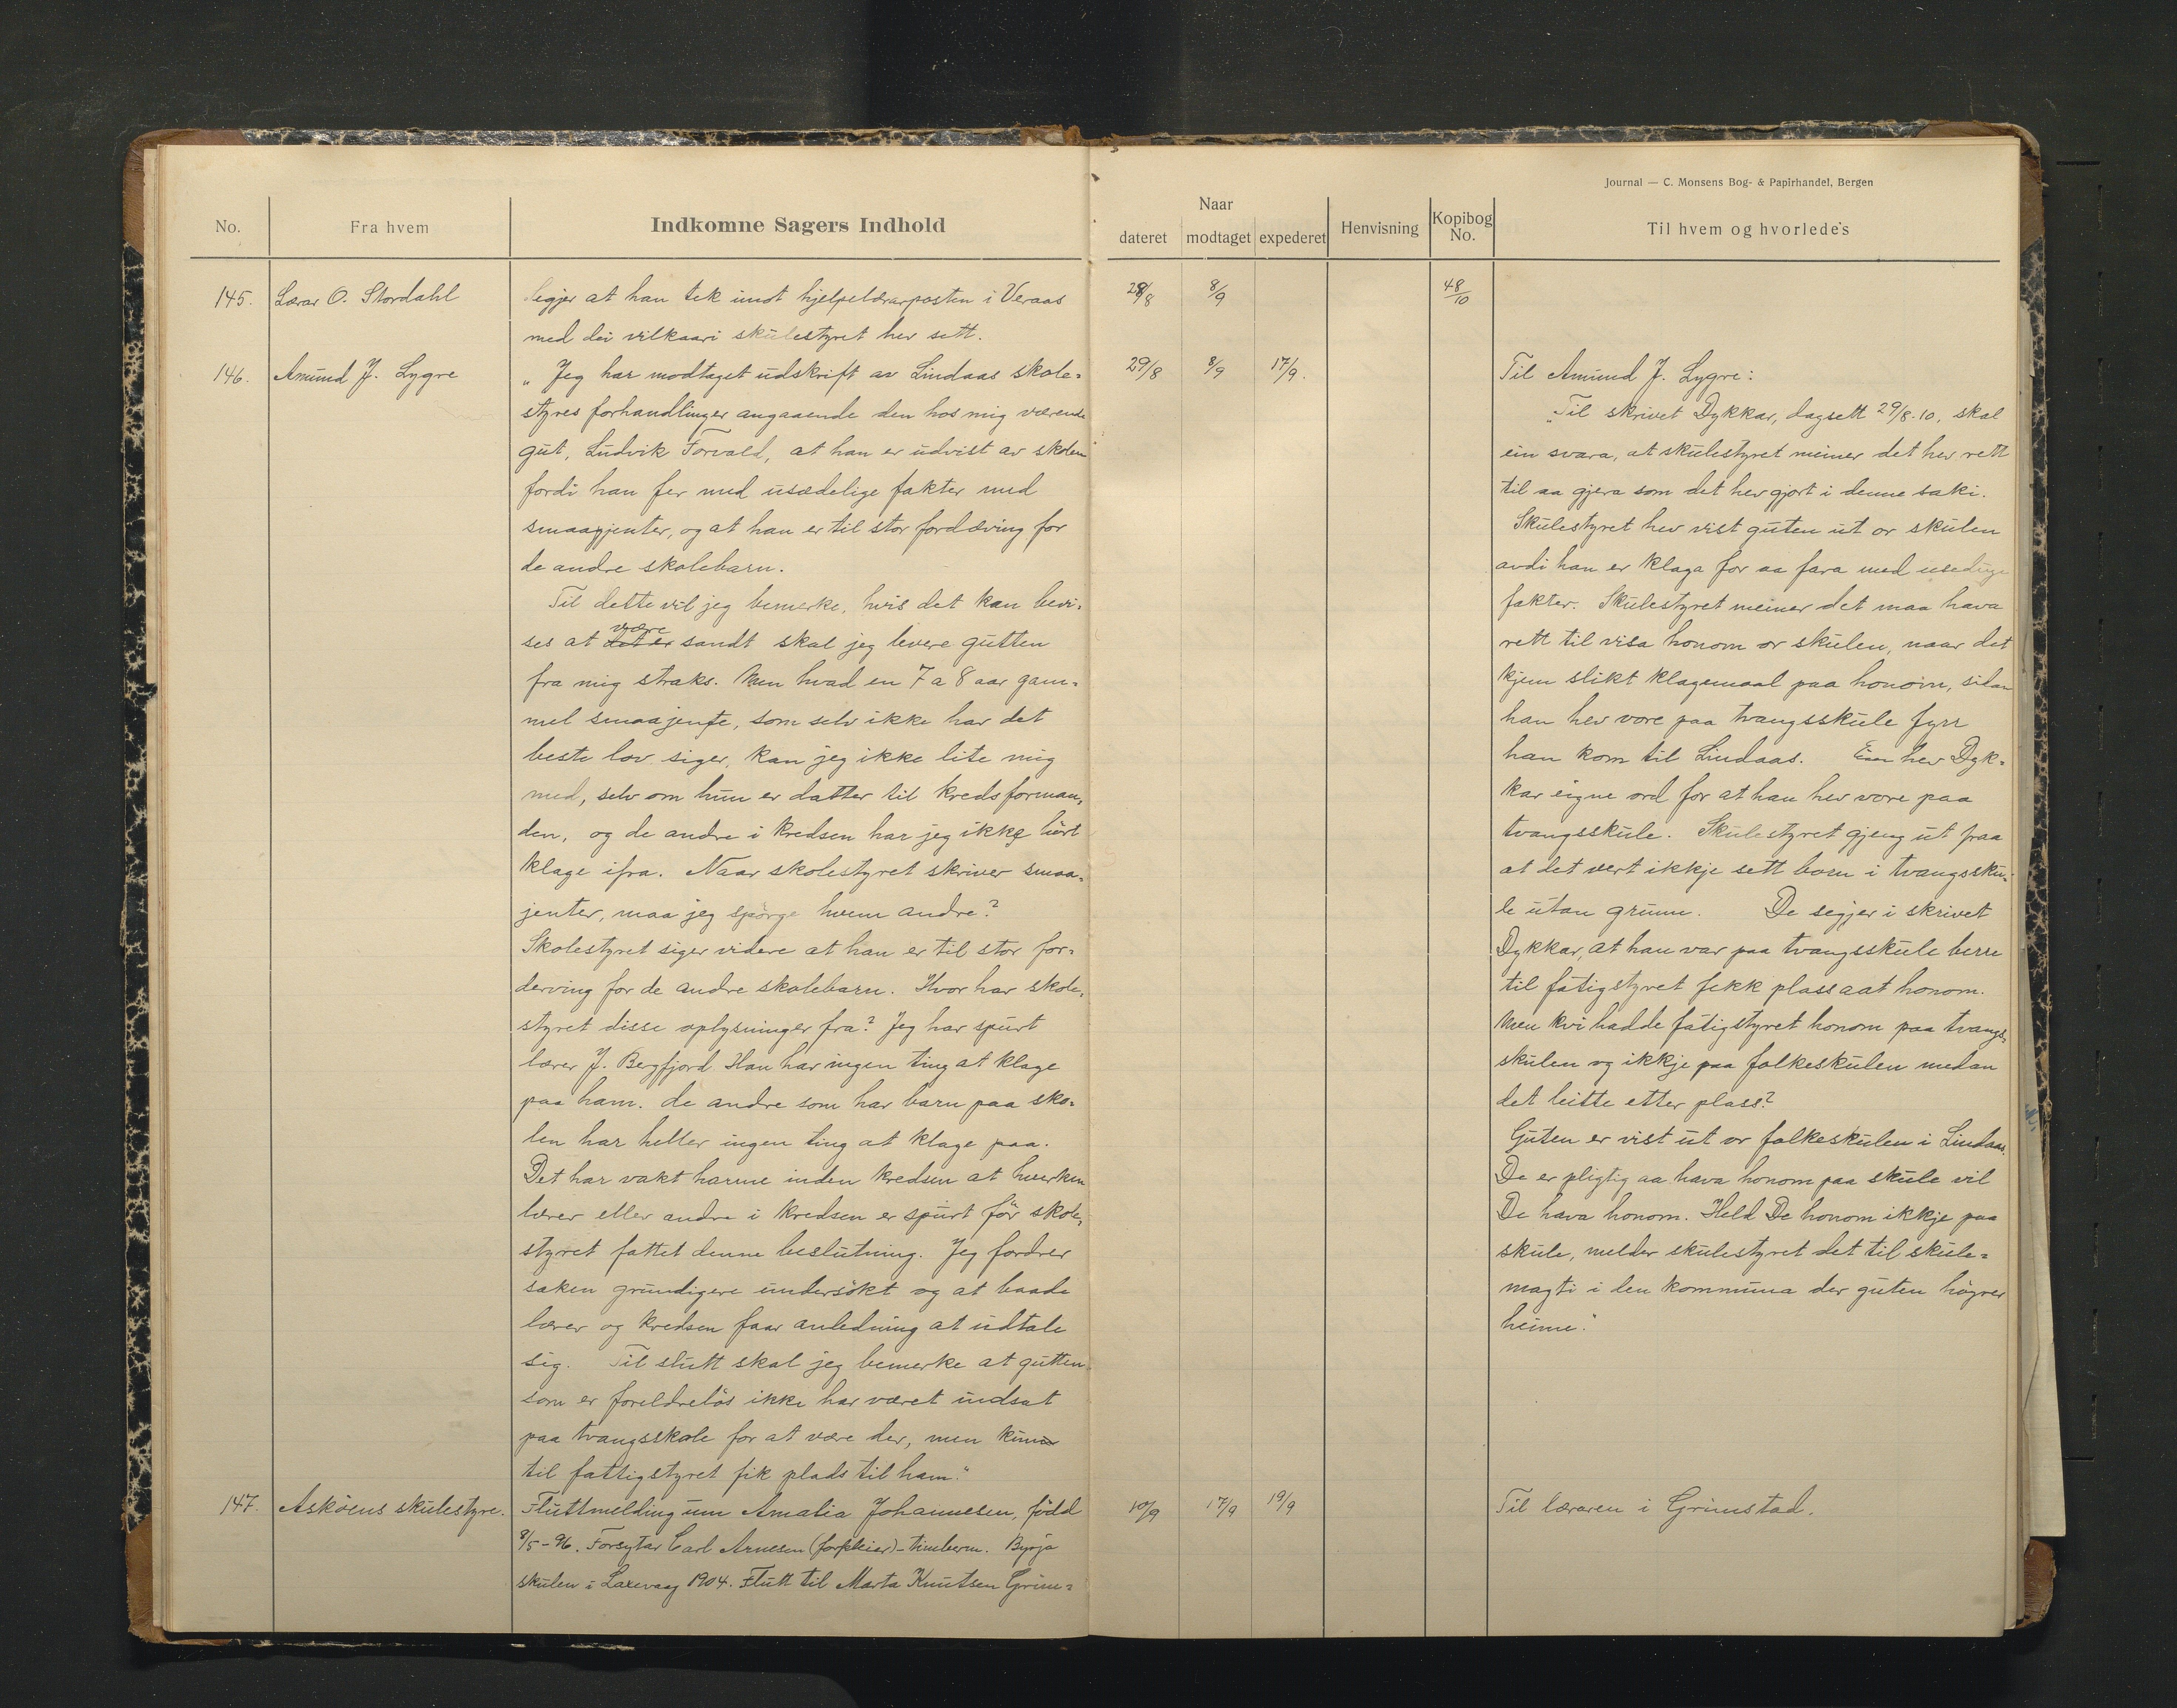 Journal — C. Monsens Bog- & Papirhandel, Bergen
No.
Fra hvem
Indkomne Sagers Indhold
Naar
dateret
modtaget
expederet
Henvisning
Kopibog No.
Til hvem og hvorledes
145. Lærar O. Stordahl
Segjer at han tek imot hjelpelærarposten i Veraas
med dei vilkaari skulestyret hev sett.
28/8 8/9 48/10
146. Amund J. Lygre
„Jeg har modtaget udskrift av Lindaas skole=
styres forhandlinger angaaende den hos mig værende
gut, Ludvik Torvald, at han er udvist av skolen
fordi han fer med usædelige fakter med
smaagjenter, og at han er til stor fordæving for
de andre skolebarn.
Til dette vil jeg bemerke, hvis det kan bevi=
ses at det er være sandt skal jeg levere gutten
fra mig straks. Men hvad en 7 a 8 aar gam=
mel smaajente, som selv ikke har det
beste lov siger, kan jeg ikke lite mig
med, selv om hun er datter til kredsforman=
den, og de andre i kredsen har jeg ikke hört
klage ifra. Naar skolestyret skriver smaa=
jenter, maa jeg spörge hvem andre?
Skolestyret siger videre at han er til stor for=
derving for de andre skolebarn. Hvor har skole=
styret disse oplysninger fra? Jeg har spurt
lærer J. Bergfjord. Han har ingen ting at klage
paa ham. de andre som har barn paa sko=
len har heller ingen ting at klage paa.
Det har vakt harme inden kredsen at hverken
lærer eller andre i kredsen er spurt för skole=
styret fattet denne beslutning. Jeg fordrer
saken grundigere undersökt og at baade
lærer og kredsen faar anledning at udtale
sig. Til slutt skal jeg bemerke at gutten
som er foreldrelös ikke har været indsat
paa tvangsskole for at være der, men kun
til fattigstyret fik plads til ham."
29/8 8/9 17/9.
Til Amund J. Lygre:
„Til skrivet Dykkar, dagsett 29/8-10, skal
ein svara, at skulestyret meiner det hev rett
til aa gjera som det hev gjort i denne saki.
Skulestyret hev vist guten ut or skulen
avdi han er klaga for aa fara med usedlige
fakter. Skulestyret meiner det maa hava
rett til visa honom or skulen, naar det
kjem slikt klagemaal paa honom, sidan
han hev vore paa tvangsskule fyrr
han kom til Lindaas. Ein hev Dyk=
kar eigne ord for at han hev vore paa
tvangsskule. Skulestyret gjeng ut fraa
at det vert ikkje sett born i tvangssku=
le utan grunn. De segjer i skrivet
Dykkar, at han var paa tvangsskule berre
til fatigstyret fekk plass aat honom.
Men kvi hadde fatigstyret honom paa tvangs=
skulen og ikkje paa folkeskulen medan
det leitte etter plass?
Guten er vist ut or folkeskulen i Lindaas.
De er pligtig aa hava honom paa skule vil
De hava honom. Held De honom ikkje paa
skule, melder skulestyret det til skule=
magti i den kommuna der guten höyrer
heime."
147. Asköens skulestyre.
Fluttmelding um Amalia Johannesen, född
8/5-96. Forsytar Carl Arnesen (forpleier) - timberm. Byrja
skulen i Laxevaag 1904. Flutt til Marta Knutsen Grim=
10/9 17/9 19/9
Til læraren i Grimstad.